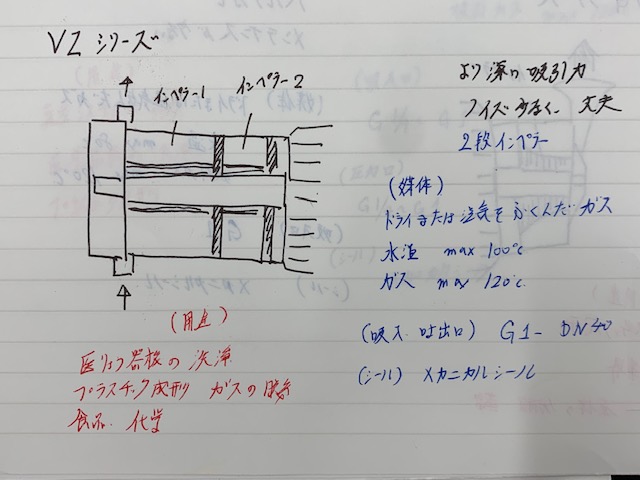 VZ シリーズ
インペラー1 インペラー2
より深い吸引力
ノイズ少なく、丈夫
2段インペラー
(媒体)
ドライまたは湿気をふくんだガス
水温 max 100℃
ガス max 120℃
(吸入 吐出口) G1- DN40
(シール) メカニカルシール
(用途)
医りょう器機の洗浄
プラスチック成形 ガスの
食品. 化学